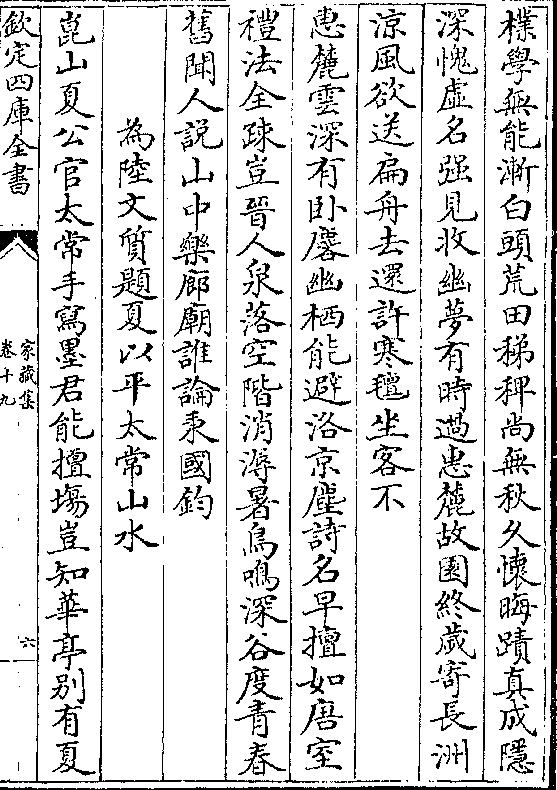 樸學無能漸白頭荒田稊稗尚無秋久懷晦蹟真成隱
深愧虛名强見收幽夢有時過惠麓故園終歳寄長洲
涼風欲送扁舟去還許寒氊坐客不
惠麓雲深有卧麐幽栖能避洛京塵詩名早擅如唐室
禮法全踈豈晉人泉落空階消溽暑鳥鳴深谷度青春
舊聞人説山中樂廊廟誰論秉國鈞
為陸文質題夏以平太常山水
崑山夏公官太常手寫墨君能擅塲豈知華亭别有夏
欽定四庫全書
家藏集
卷十九
六